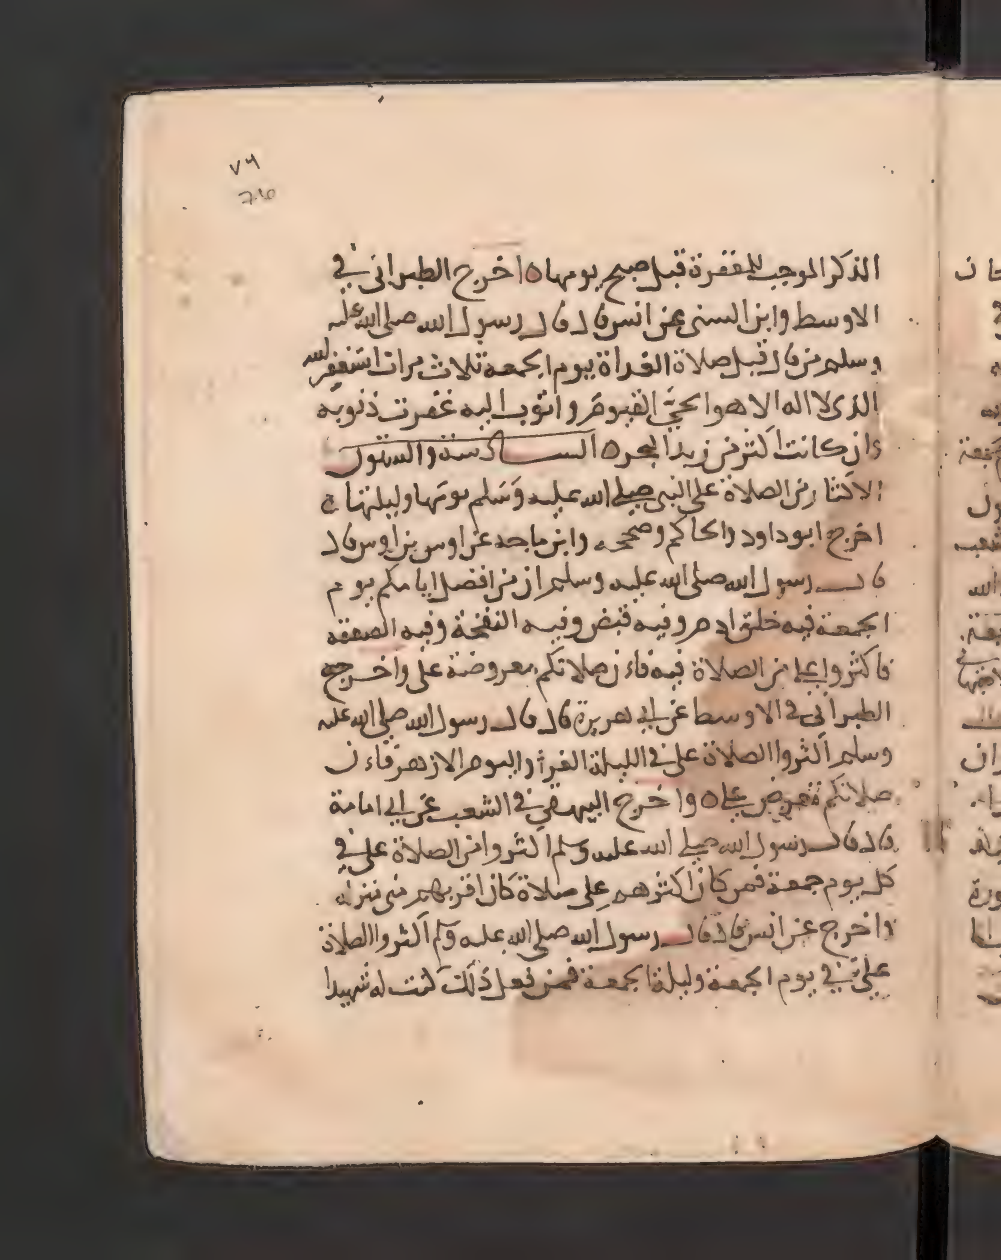 ٧٩
الذكر الموجب للمغفرة قبل صبح يومها ه اخرج الطبراني في
الاوسط وابن السني عن انس قال قال رسول الله صلى الله عليه
وسلم من قال قبل صلاة الغداة يوم الجمعة ثلاث مرات استغفر الله
الذي لا اله الا هو الحي القيوم واتوب اليه غفرت ذنوبه
وان كانت اكثر من زبد البحر ه السادسة والستون
الاكثار من الصلاة على النبي صلى الله عليه وسلم يومها وليلتها
اخرج ابو داود والحاكم وصححه وابن ماجه عن اوس بن اوس قال
قال رسول الله صلى الله عليه وسلم ان من افضل ايامكم يوم
الجمعة فيه خلق ادم وفيه قبض وفيه النفخة وفيه الصعقة
فاكثروا علي من الصلاة فيه فان صلاتكم معروضة علي واخرج
الطبراني في الاوسط عن ابي هريرة قال قال رسول الله صلى الله عليه
وسلم اكثروا الصلاة علي في الليلة الغرا واليوم الازهر فان
صلاتكم تعرض علي ه واخرج البيهقي في الشعب عن ابي امامة
قال قال رسول الله صلى الله عليه وسلم اكثروا من الصلاة علي في
كل يوم جمعة فمن كان اكثرهم علي صلاة كان اقربهم مني منزله
واخرج عن انس قال قال رسول الله صلى الله عليه وسلم اكثروا الصلاة
علي في يوم الجمعة وليلة الجمعة فمن فعل ذلك كنت له شهيدا